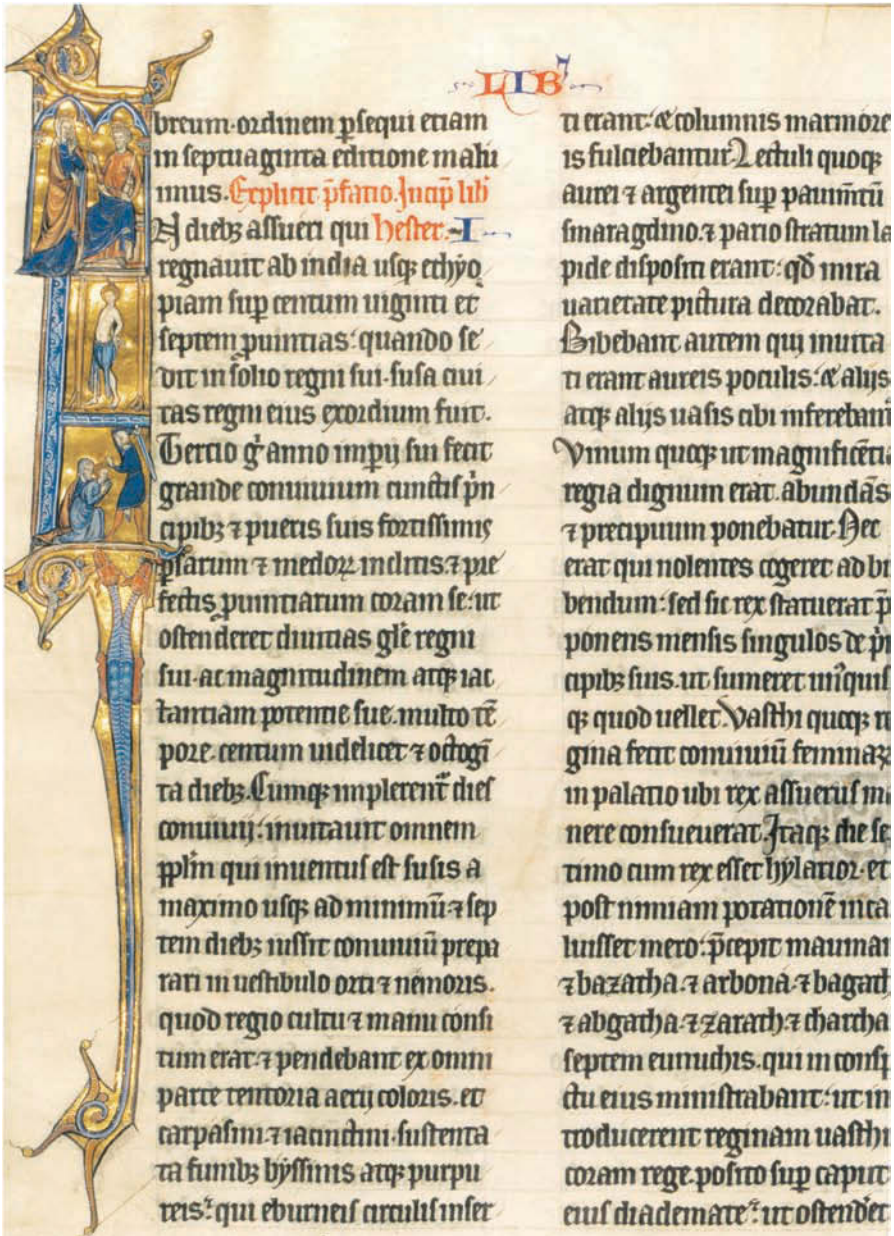 LIB
breum ordinem ꝑsequi etiam
in septuaginta editione malu
imus. Explicit p̄fatio. Incip̄ lib̄
N dieb; assueri qui hester. I
regnauit ab india usq; ethyo
piam sup centum uiginti et
septem ꝓuintias: quando se
dit in solio regni sui. susa ciui
tas regni eius exordium fuit.
Tercio g̊ anno imp̄ij sui fecit
grande conuiuium cunctis p̄n
cipib; ⁊ pueris suis fortissimis
ꝑsarum ⁊ medoꝝ inclitis. ⁊ pre
fectis ꝓuintiarum coram se: ut
ostenderet diuitias gl̄e regni
sui. ac magnitudinem atq; iac
tantiam potentie sue. multo tē
pore. centum uidelicet ⁊ octogī
ta dieb;. Cumq; implerent̄ dies
conuiuij: inuitauit omnem
pp̄lm qui inuentus est susis a
maximo usq; ad minimū: ⁊ sep
tem dieb; iussit conuiuiū prepa
rari in uestibulo orti ⁊ nemoris.
quod regio cultu ⁊ manu consi
tum erat. ⁊ pendebant ex omni
parte tentoria aerij coloris. et
carpasini. ⁊ iacinctini. sustenta
ta funib; byssinis atq; purpu
reis: qui eburneis circulis inser
ti erant: & columnis marmore
is fulciebantur. Lectuli quoq;
aurei ⁊ argentei sup pauim̄tū
smaragdino. ⁊ pario stratum la
pide dispositi erant: qd̄ mira
uarietate pictura decorabat.
Bibebant autem qui inuita
ti erant aureis poculis: & alijs
atq; alijs uasis cibi inferebant̄
Vinum quoq; ut magnificētia
regia dignum erat. abundās
⁊ precipuum ponebatur. Nec
erat qui nolentes cogeret ad bi
bendum: sed sic rex statuerat p̄
ponens mensis singulos de p̄n
cipib; suis. ut sumeret un̄quis
q; quod uellet. Vasthi quoq; re
gina fecit conuiuiū feminaꝝ
in palatio ubi rex assuerus ma
nere consueuerat. Itaq; die se
timo cum rex esset hylarior. et
post nimiam potationē inca
luisset mero: p̄cepit mauman
⁊ bazatha. ⁊ arbona. ⁊ bagath
⁊ abgatha. ⁊ zarath. ⁊ charcha
septem eunuchis. qui in consp
ctu eius ministrabant: ut in
troducerent reginam uasthi
coram rege. posito sup caput
eius diademate: ut ostenderet